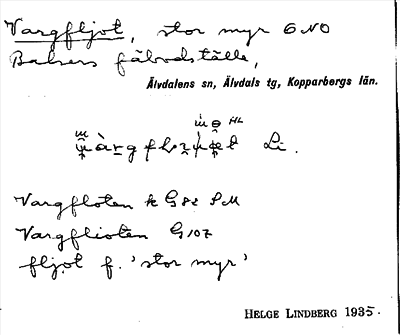 Vargfljot, stor myr 6 NO
Balsers fäbodställe,
Älvdalens sn, Älvdals tg, Kopparbergs län.
HL
Li.
Vargfloten k G82 SM
Vargflioten G107
fljot f. 'stor myr'
HELGE LINDBERG 1935.